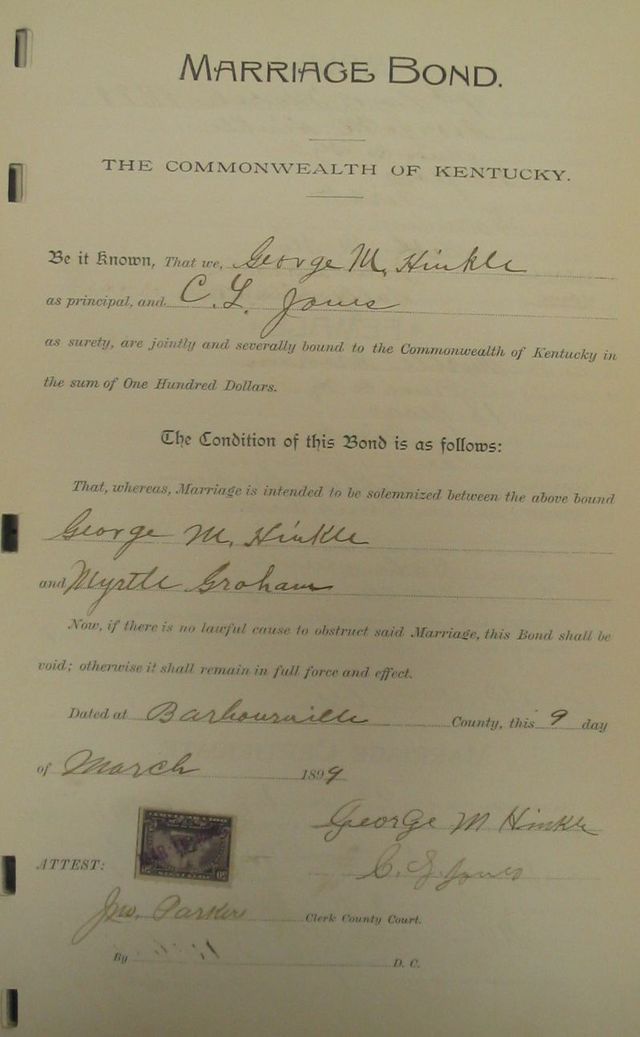 MARRIAGE BOND.
THE COMMONWEALTH OF KENTUCKY.
Be it known, That we, George M. Hinkle
as principal, and C. L. Jones
as surety, are jointly and severally bound to the Commonwealth of Kentucky in
the sum of One Hundred Dollars.
The Condition of this Bond is as follows:
That, whereas, Marriage is intended to be solemnized between the above bound
George M. Hinkle
and Myrtle Graham
Now, if there is no lawful cause to obstruct said Marriage, this Bond shall be
void; otherwise it shall remain in full force and effect.
Dated at Barbourville County, this 9 day
of March 1899
George M Hinkle
C. L. Jones
ATTEST:
Jno. Parker Clerk County Court.
By D. C.